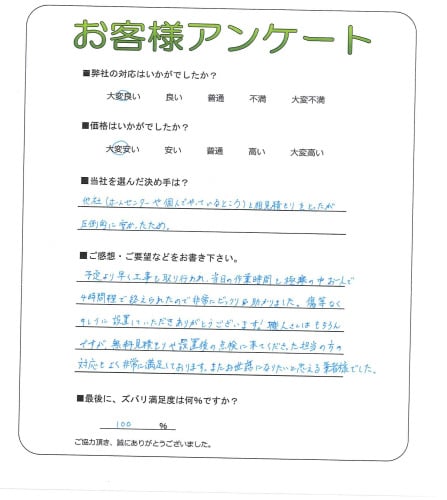 お客様アンケート
■弊社の対応はいかがでしたか？
大変良い 良い 普通 不満 大変不満
■価格はいかがでしたか？
大変安い 安い 普通 高い 大変高い
■当社を選んだ決め手は？
他社（ホームセンターや個人でやっているところ）と相見積もりをとったが
圧倒的に安かったため。
■ご感想・ご要望などをお書き下さい。
予定より早く工事も取り行われ、当日の作業時間も極寒の中お一人で
4時間程で終えられたので非常にビックリ助かりました。傷等なく
キレイに設置していただきありがとうございます！職人さんはもちろん
ですが、無料見積もりや設置後の点検に来てくださった担当の方の
対応もよく非常に満足しております。またお世話になりたいと思える業者様でした。
■最後に、ズバリ満足度は何％ですか？
100 ％
ご協力頂き、誠にありがとうございました。